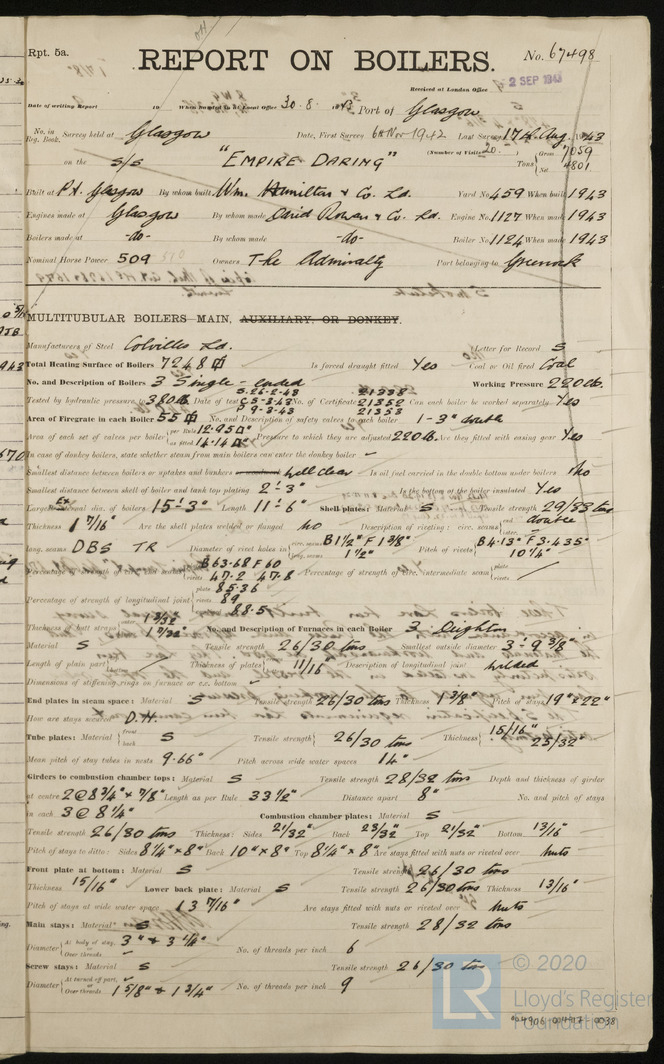 Rpt. 5a.
REPORT ON BOILERS.
No. 67498
Received at London Office
2 SEP 1943
Date of writing Report 19 When handed in at Local Office 30.8.1943 Port of Glasgow
No. in Reg. Book. Survey held at Glasgow Date, First Survey 6th Nov 1942 Last Survey 17th Aug. 1943
(Number of Visits 20)
on the S/S "EMPIRE DARING" Tons { Gross 7059 Net 4801
Built at Pt. Glasgow By whom built Wm. Hamilton & Co. Ld. Yard No. 459 When built 1943
Engines made at Glasgow By whom made David Rowan & Co. Ld. Engine No. 1127 When made 1943
Boilers made at -do- By whom made -do- Boiler No. 1124 When made 1943
Nominal Horse Power 509 Owners The Admiralty Port belonging to Greenock
MULTITUBULAR BOILERS MAIN, AUXILIARY, OR DONKEY.
Manufacturers of Steel Colvilles Ld. Letter for Record S
Total Heating Surface of Boilers 7248 Is forced draught fitted Yes Coal or Oil fired Coal
No. and Description of Boilers 3 Single-ended Working Pressure 220 lb.
Tested by hydraulic pressure to 380 lb Date of test S.26.2.43 C 5.3.43 P 9.3.43 No. of Certificate 21338 21352 21353 Can each boiler be worked separately Yes
Area of Firegrate in each Boiler 55 No. and Description of safety valves to each boiler 1 - 3" double
Area of each set of valves per boiler { per Rule 12.95 as fitted 14.14 Pressure to which they are adjusted 220 lb. Are they fitted with easing gear Yes
In case of donkey boilers, state whether steam from main boilers can enter the donkey boiler -
Smallest distance between boilers or uptakes and bunkers well clear Is oil fuel carried in the double bottom under boilers No
Smallest distance between shell of boiler and tank top plating 2'-3" Is the bottom of the boiler insulated Yes
Largest Ex dia. of boilers 15'-3" Length 11'-6" Shell plates: Material S Tensile strength 29/33 tons
Thickness 1 7/16" Are the shell plates welded or flanged No Description of riveting: circ. seams { end double
long. seams DBS TR Diameter of rivet holes in { circ. seams B 1 1/2" F 1 3/8" long. seams 1 1/2" Pitch of rivets { B 4.13" F 3.435" 10 1/4"
Percentage of strength of circ. end seams { plate B 63.68 F 60 rivets 47.2 47.8 Percentage of strength of circ. intermediate seam { plate rivets
Percentage of strength of longitudinal joint { plate 85.36 rivets 89 combined 88.5
Thickness of butt straps { outer 1 3/32 inner 1 7/32" No. and Description of Furnaces in each Boiler 3 Deighton
Material S Tensile strength 26/30 tons Smallest outside diameter 3'-9 3/8"
Length of plain part { Thickness of plates { 11/16 Description of longitudinal joint welded
Dimensions of stiffening rings on furnace or c.c. bottom -
End plates in steam space: Material S Tensile strength 26/30 tons Thickness 1 3/8" Pitch of stays 19" x 22"
How are stays secured D.N.
Tube plates: Material { front back S Tensile strength { 26/30 tons Thickness { 15/16" 23/32"
Mean pitch of stay tubes in nests 9.66" Pitch across wide water spaces 14"
Girders to combustion chamber tops: Material S Tensile strength 28/32 tons Depth and thickness of girder
at centre 2 @ 8 3/4" x 7/8" Length as per Rule 33 1/2" Distance apart 8" No. and pitch of stays
in each 3 @ 8 1/4" Combustion chamber plates: Material S
Tensile strength 26/30 tons Thickness: Sides 21/32" Back 23/32 Top 21/32 Bottom 13/16
Pitch of stays to ditto: Sides 8 1/4" x 8" Back 10" x 8" Top 8 1/4" x 8" Are stays fitted with nuts or riveted over nuts
Front plate at bottom: Material S Tensile strength 26/30 tons
Thickness 15/16" Lower back plate: Material S Tensile strength 26/30 tons Thickness 13/16
Pitch of stays at wide water space 13 7/16" Are stays fitted with nuts or riveted over nuts
Main stays: Material S Tensile strength 28/32 tons
Diameter { At body of stay, 3" & 3 1/4" Over threads - No. of threads per inch 6
Screw stays: Material S Tensile strength 26/30 tons
Diameter { At turned off part, Over threads 1 5/8" & 1 3/4" No. of threads per inch 9
© 2020
LR Lloyd's Register Foundation
004906-004917-0038